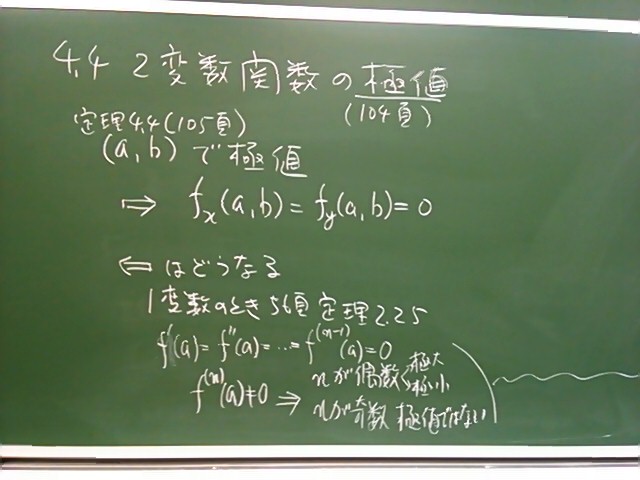 4.4 2変数関数の極値
(104頁)
定理4.4(105頁)
(a,b)で極値
⇒ fx(a,b)=fy(a,b)=0
⇐ はどうなる
1変数のとき 56頁 定理2.25
f'(a)=f''(a)=…=f^(n-1)(a)=0
f^(n)(a)≠0 ⇒ nが偶数 極大 極小
nが奇数 極値ではない